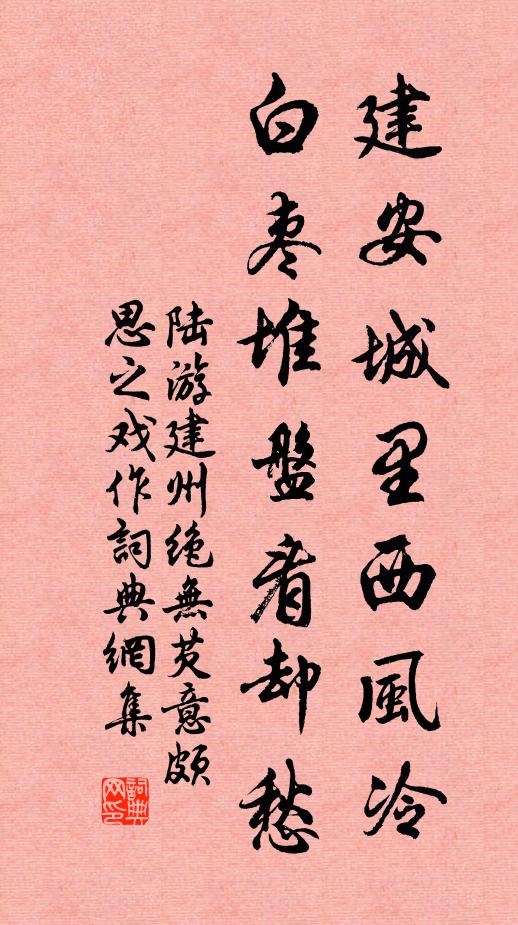 建安城里西風冷
白枣堆盤看却愁
陆游建州绝無芡意頗
思之戏作詞典網集
詞典网印